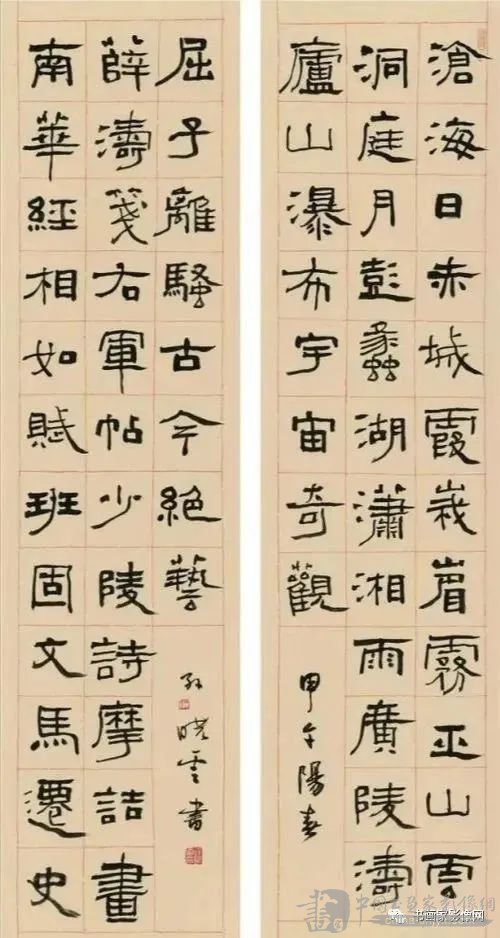 滄海日赤城霞峩眉霧巫山雲
洞庭月彭蠡湖瀟湘雨廣陵濤
廬山瀑布宇宙奇觀
甲午陽春
南華經相如賦班固文馬遷史
薛濤箋右軍帖少陵詩摩詰畫
屈子離騷古今絶藝
孫曉雲書
书画家影像网